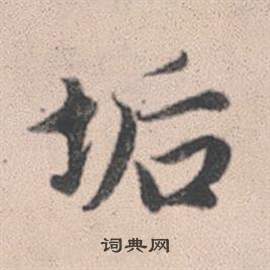 垢
词典网